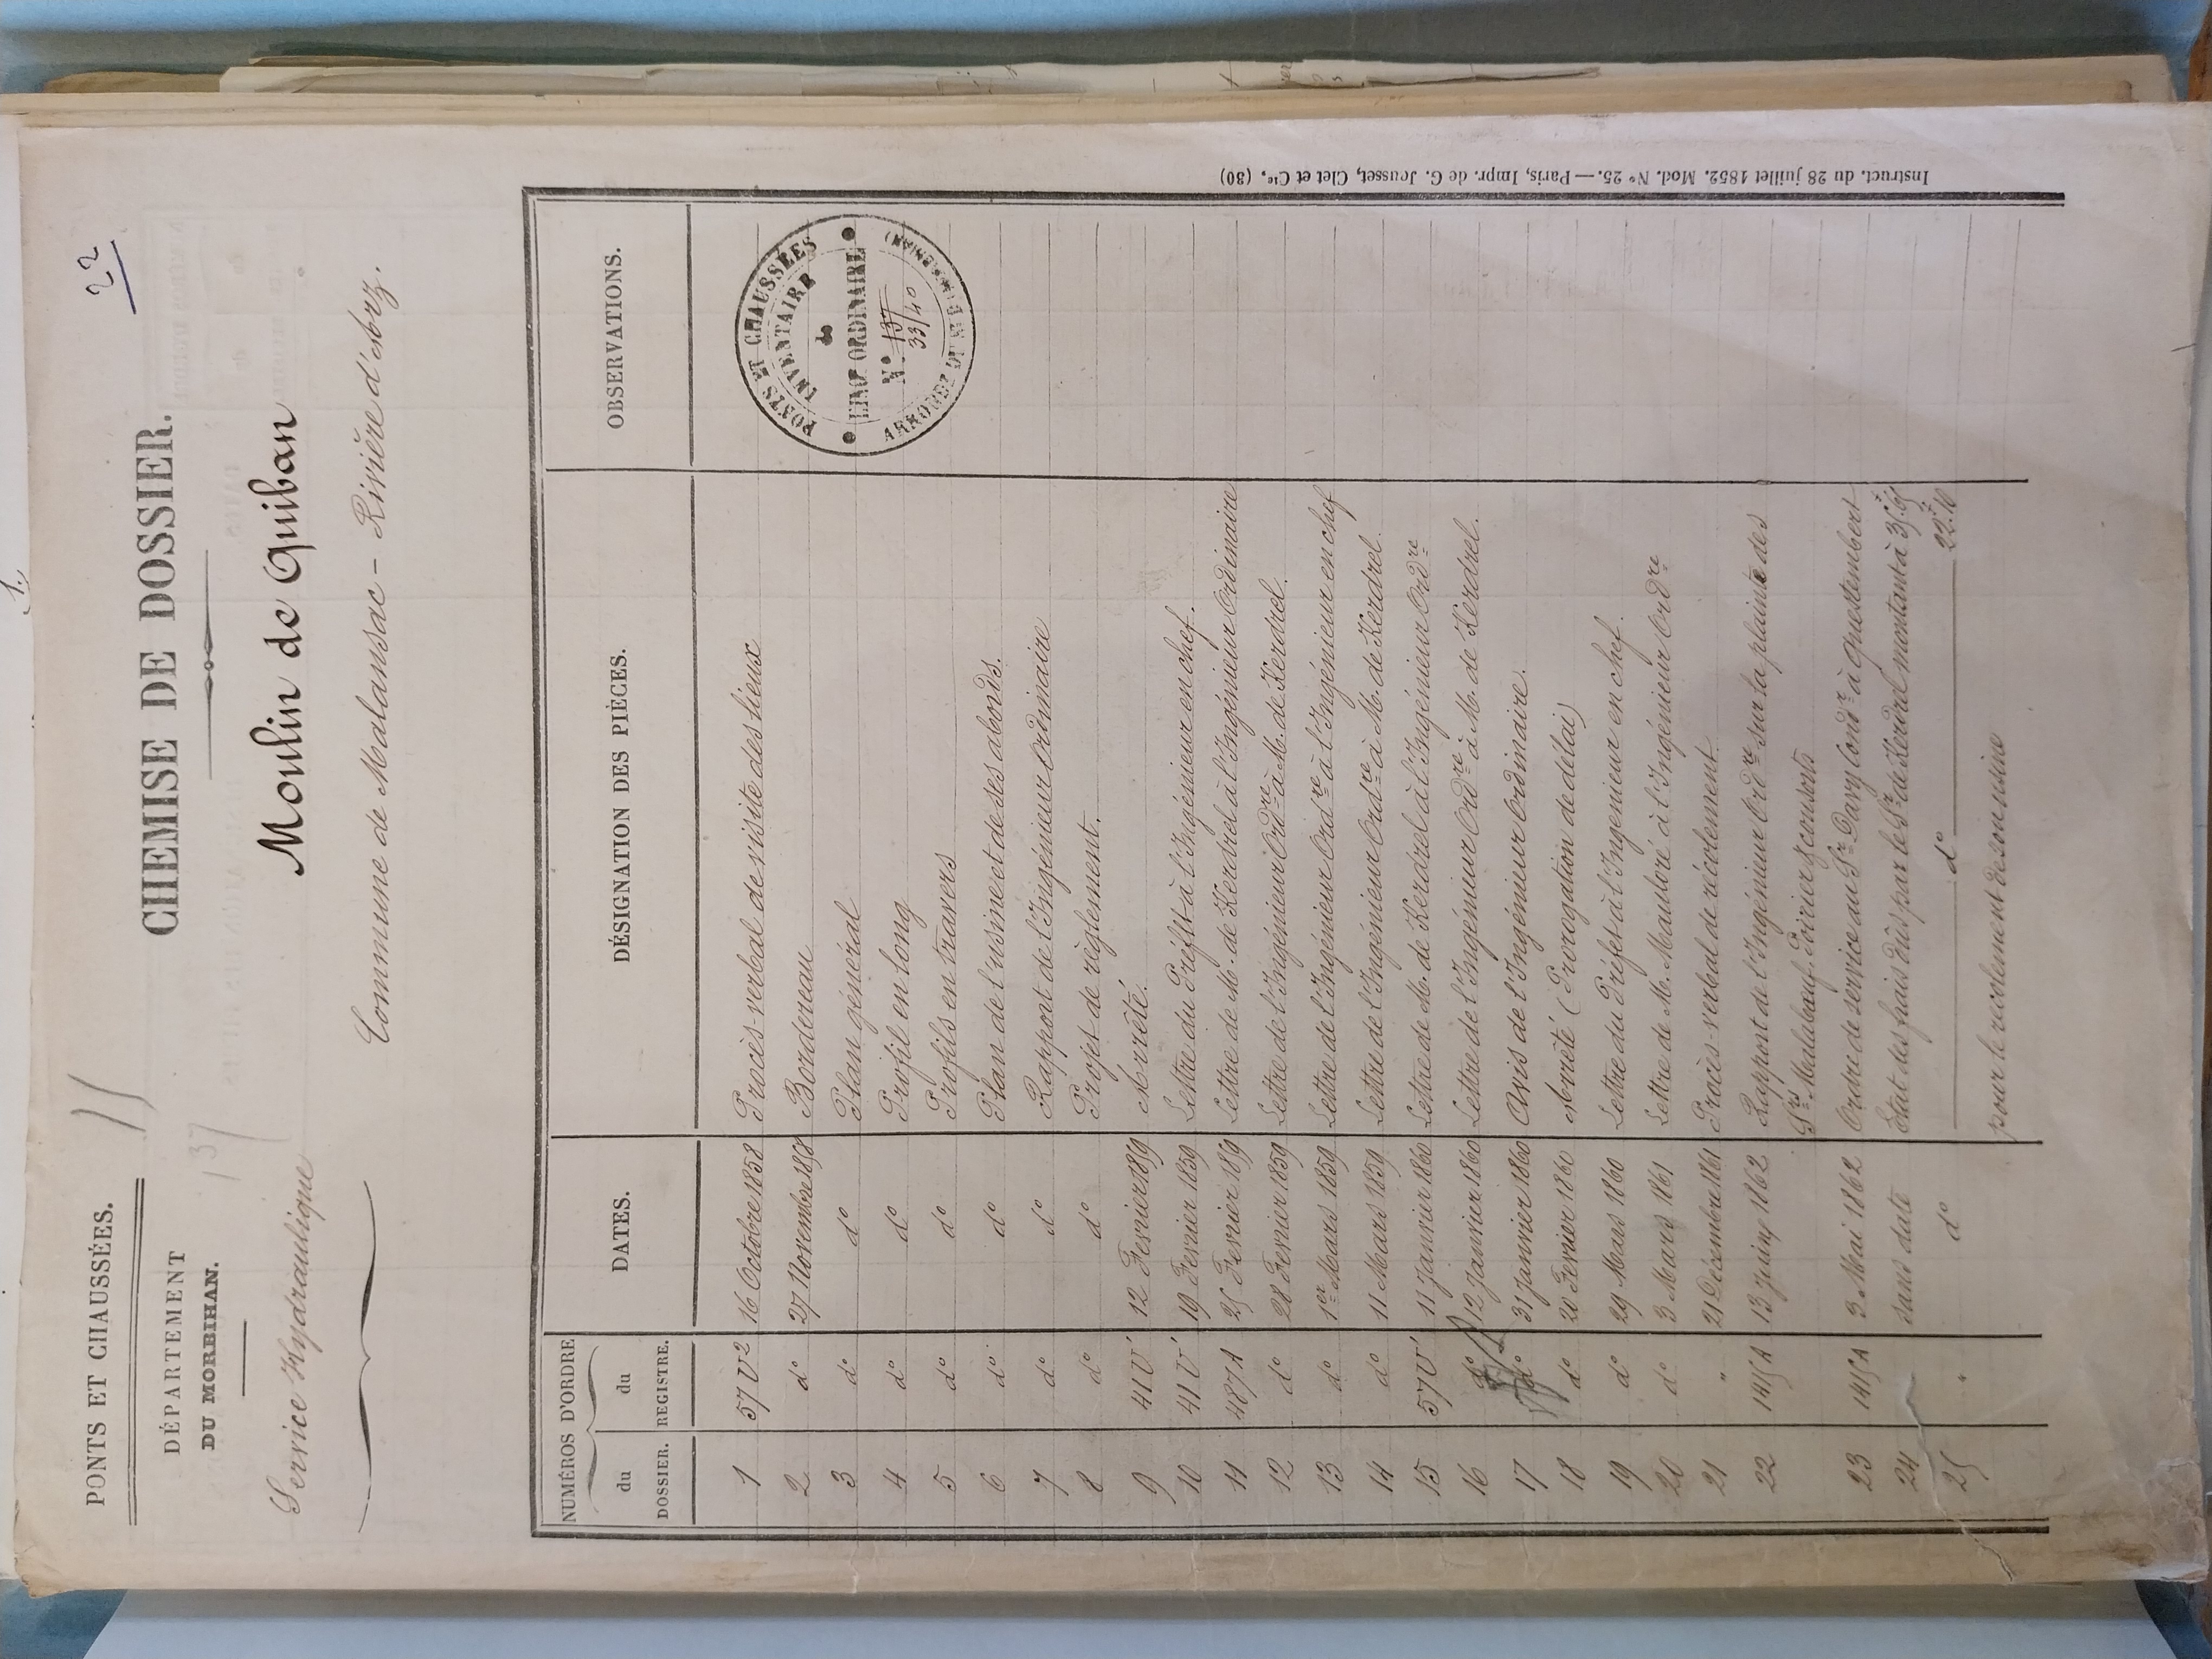 PONTS ET CHAUSSÉES.
DÉPARTEMENT
DU MORBIHAN.
Service Hydraulique
137
22
CHEMISE DE DOSSIER.
Moulin de Guiban
Commune de Malansac - Rivière d'Arz.
NUMÉROS D'ORDRE
du DOSSIER. du REGISTRE. DATES. DÉSIGNATION DES PIÈCES. OBSERVATIONS.
1 57 V² 16 Octobre 1858 Procès-verbal de visite des lieux
2 d° 27 Novembre 1858 Bordereau
3 d° d° Plan général
4 d° d° Profil en long
5 d° d° Profils en travers
6 d° d° Plan de l'usine et de ses abords.
7 d° d° Rapport de l'Ingénieur Ordinaire
8 d° d° Projet de règlement.
9 41 V' 12 Fevrier 1859 Arrêté.
10 41 V' 19 Fevrier 1859 Lettre du Préfet à l'Ingénieur en chef.
11 487 A 25 Fevrier 1859 Lettre de M. de Kerdrel à l'Ingénieur Ordinaire
12 d° 28 Fevrier 1859 Lettre de l'Ingénieur Ord.re à M. de Kerdrel.
13 d° 1er Mars 1859 Lettre de l'Ingénieur Ord.re à l'Ingénieur en chef
14 d° 11 Mars 1859 Lettre de l'Ingénieur Ord.re à M. de Kerdrel.
15 57 V' 11 Janvier 1860 Lettre de M. de Kerdrel à l'Ingénieur Ord.re
16 d° 12 Janvier 1860 Lettre de l'Ingénieur Ord.re à M. de Kerdrel.
17 d° 31 Janvier 1860 Avis de l'Ingénieur Ordinaire.
18 d° 20 Fevrier 1860 Arrêté (Prorogation de délai)
19 d° 29 Mars 1860 Lettre du Préfet à l'Ingénieur en chef.
20 d° 3 Mars 1861 Lettre de M. Mauloré à l'Ingénieur Ord.re
21 " 21 Décembre 1861 Procès-verbal de récolement.
22 1415 A 13 Juin 1862 Rapport de l'Ingénieur Ord.re sur la plainte des
S.rs Malabœuf, Poirier & consorts
23 1415 A 3 Mai 1862 Ordre de service au S.r Davy Cond.r à Questembert
24 sans date Etat des frais dûs par le S.r de Kerdrel montant à 35.f 65
25 " d° d° 22.f 10
pour le récolement de son usine
PONTS ET CHAUSSÉES
INVENTAIRE
de
L'ING. ORDINAIRE
N° 137
33/40
Instruct. du 28 juillet 1852. Mod. N° 25. — Paris, Impr. de G. Jousset, Clet et Cie. (80)